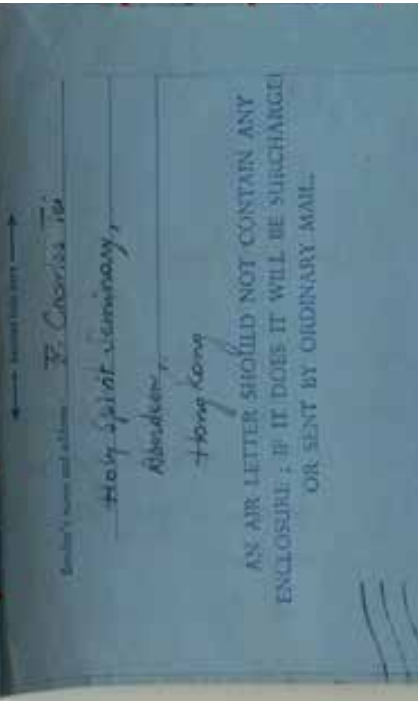 Sender's name and address
Holy Spirit Seminary,
Aberdeen,
Hong Kong
AN AIR LETTER SHOULD NOT CONTAIN ANY
ENCLOSURE; IF IT DOES IT WILL BE SURCHARGED
OR SENT BY ORDINARY MAIL.